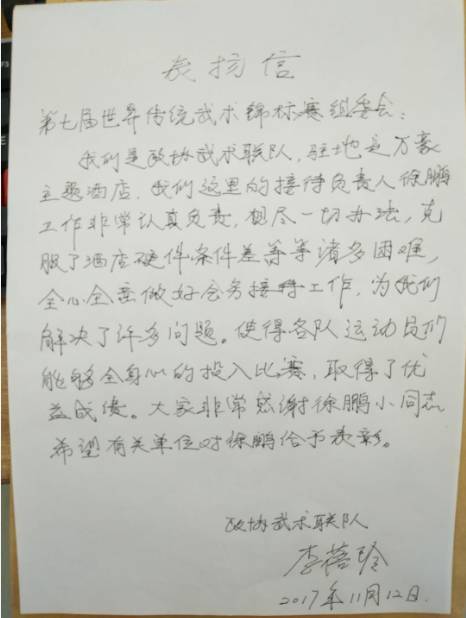 表扬信
第七届世界传统武术锦标赛组委会:
我们是政协武术联队，驻地是万豪
主题酒店，我们这里的接待负责人徐鹏
工作非常认真负责，想尽一切办法，克
服了酒店硬件条件差等等诸多困难，
全心全意做好会务接待工作，为我们
解决了许多问题。使得各队运动员们
能够全身心的投入比赛，取得了优
益成绩。大家非常感谢徐鹏小同志，
希望有关单位对徐鹏给予表彰。
政协武术联队
李蓓玲
2017年11月12日.